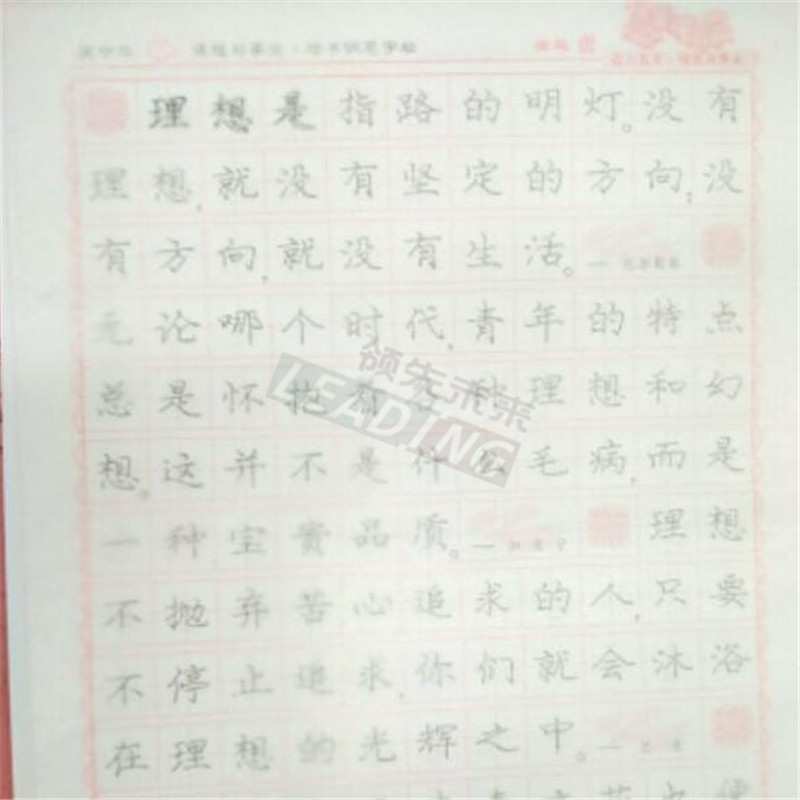 理想是指路的明灯。没有
理想，就没有坚定的方向；没
有方向，就没有生活。—
无论哪个时代，青年的特点
总是怀抱着各种理想和幻
想。这并不是什么毛病，而是
一种宝贵品质。— 理想
不抛弃苦心追求的人，只要
不停止追求，你们就会沐浴
在理想的光辉之中。—
领先未来
LEADING